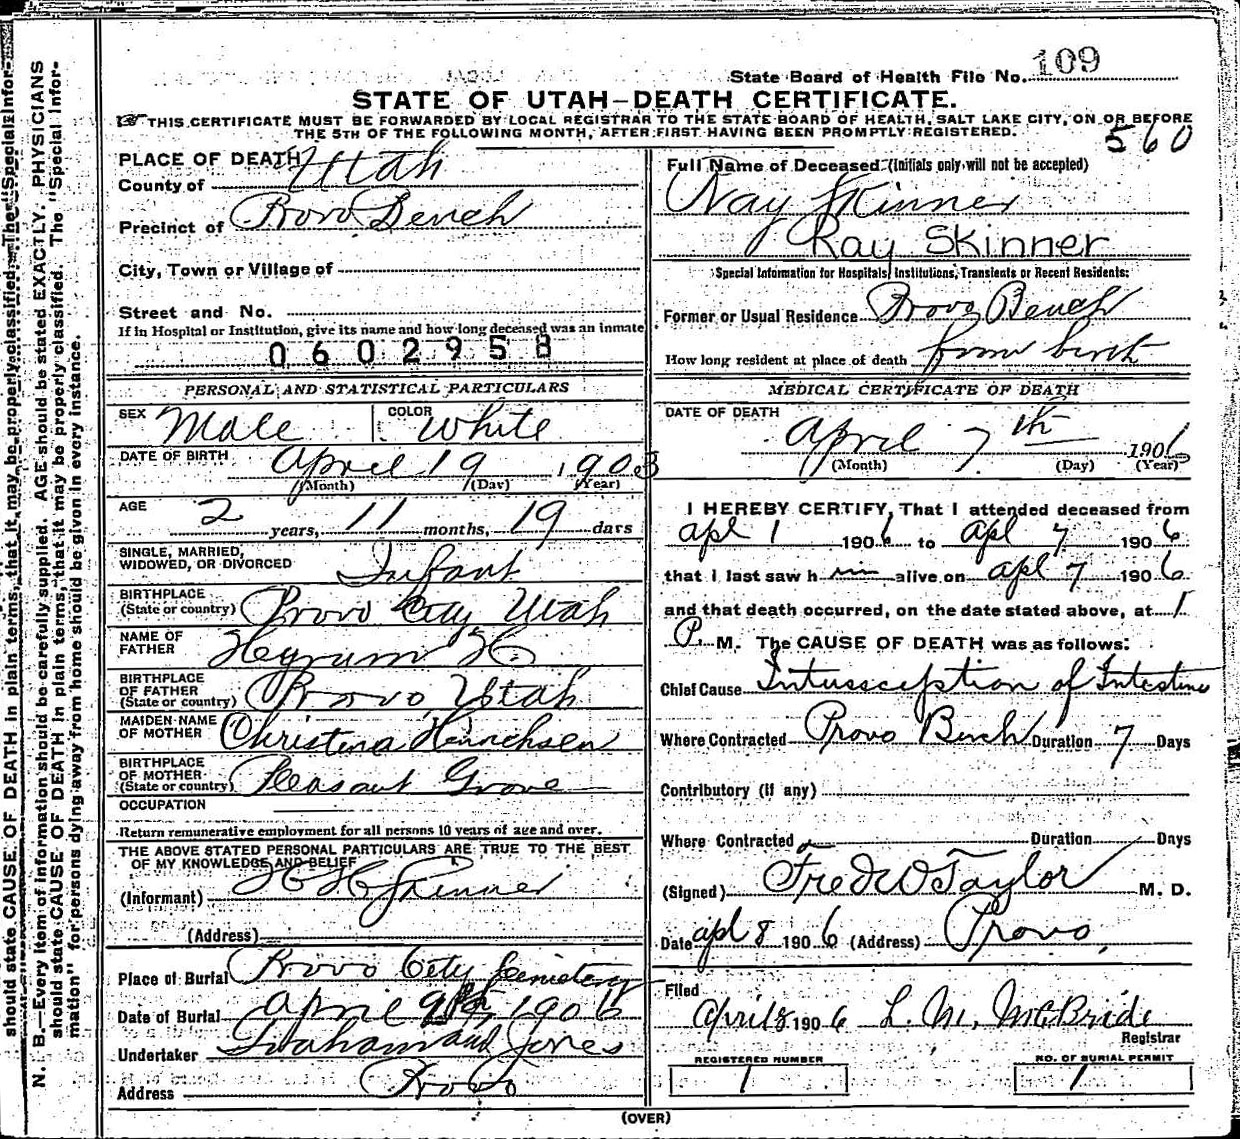 State Board of Health File No. 109
STATE OF UTAH—DEATH CERTIFICATE.
THIS CERTIFICATE MUST BE FORWARDED BY LOCAL REGISTRAR TO THE STATE BOARD OF HEALTH, SALT LAKE CITY, ON OR BEFORE
THE 5TH OF THE FOLLOWING MONTH, AFTER FIRST HAVING BEEN PROMPTLY REGISTERED.
560
PLACE OF DEATH
County of Utah
Precinct of Provo Bench
City, Town or Village of
Street and No.
If in Hospital or Institution, give its name and how long deceased was an inmate
0602958
Full Name of Deceased (Initials only will not be accepted)
Ray Skinner
Ray Skinner
Special Information for Hospitals, Institutions, Transients or Recent Residents:
Former or Usual Residence Provo Bench
How long resident at place of death from birth
PERSONAL AND STATISTICAL PARTICULARS
SEX Male COLOR White
DATE OF BIRTH April 19 1903
(Month) (Day) (Year)
AGE 2 years, 11 months, 19 days
SINGLE, MARRIED,
WIDOWED, OR DIVORCED Infant
BIRTHPLACE
(State or country) Provo City Utah
NAME OF
FATHER Hyrum H.
BIRTHPLACE
OF FATHER
(State or country) Provo, Utah
MAIDEN NAME
OF MOTHER Christina Hinrichsen
BIRTHPLACE
OF MOTHER
(State or country) Pleasant Grove
OCCUPATION
Return remunerative employment for all persons 10 years of age and over.
THE ABOVE STATED PERSONAL PARTICULARS ARE TRUE TO THE BEST
OF MY KNOWLEDGE AND BELIEF
(Informant) H H Skinner
(Address)
Place of Burial Provo City Cemetery
Date of Burial April 9th, 1906
Undertaker Graham and Jones
Address Provo
MEDICAL CERTIFICATE OF DEATH
DATE OF DEATH
April 7th 1906
(Month) (Day) (Year)
I HEREBY CERTIFY, That I attended deceased from
apl 1 1906 to apl 7 1906
that I last saw him alive on apl 7 1906
and that death occurred, on the date stated above, at 1
P. M. The CAUSE OF DEATH was as follows:
Chief Cause Intussception of Intestine
Where Contracted Provo Bench Duration 7 Days
Contributory (if any)
Where Contracted Duration Days
(Signed) Fred W Taylor M. D.
Date apl 8 1906 (Address) Provo,
Filed
April 8 1906 L. M. McBride
Registrar
REGISTERED NUMBER
1
NO. OF BURIAL PERMIT
1
(OVER)
N. B.—Every item of information should be carefully supplied. AGE should be stated EXACTLY. PHYSICIANS
should state CAUSE OF DEATH in plain terms, that it may be properly classified. The "Special Infor-
mation" for persons dying away from home should be given in every instance.
should state CAUSE OF DEATH in plain terms, that it may be properly classified. The "Special Infor-